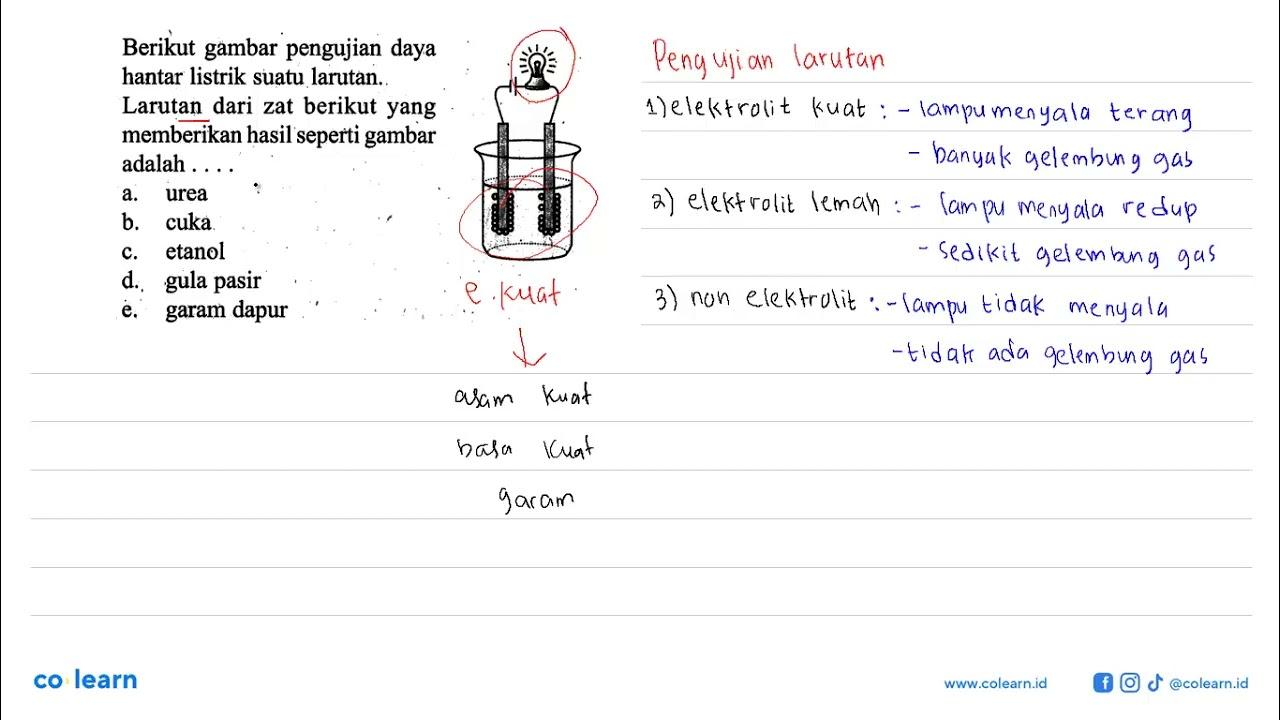 Berikut gambar pengujian daya
hantar listrik suatu larutan.
Larutan dari zat berikut yang
memberikan hasil seperti gambar
adalah . . . .
a. urea
b. cuka
c. etanol
d. gula pasir
e. garam dapur
e. kuat
asam kuat
basa kuat
garam
Pengujian larutan
1) elektrolit kuat : - lampu menyala terang
- banyak gelembung gas
2) elektrolit lemah : - lampu menyala redup
- sedikit gelembung gas
3) non elektrolit : - lampu tidak menyala
- tidak ada gelembung gas
co learn
www.colearn.id
@colearn.id